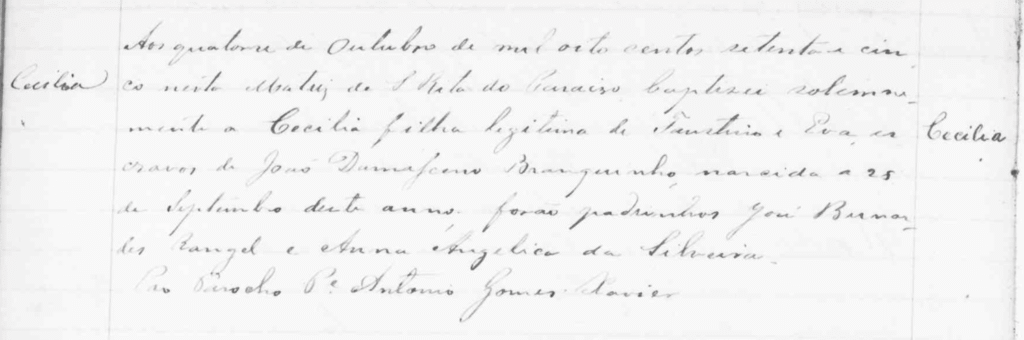 Aos quatorze de Outubro de mil oito centos setenta e cin
Cecilia
co nesta Matriz de S Rita do Paraiso baptizei solemne-
mente a Cecilia filha legitima de Faustino e Eva, es
Cecilia
cravos de João Damasceno Branquinho, nascida a 25
de Septembro deste anno, forão padrinhos José Bernar-
des Rangel e Anna Angelica da Silveira.
Parocho Pe Antonio Gomes Xavier